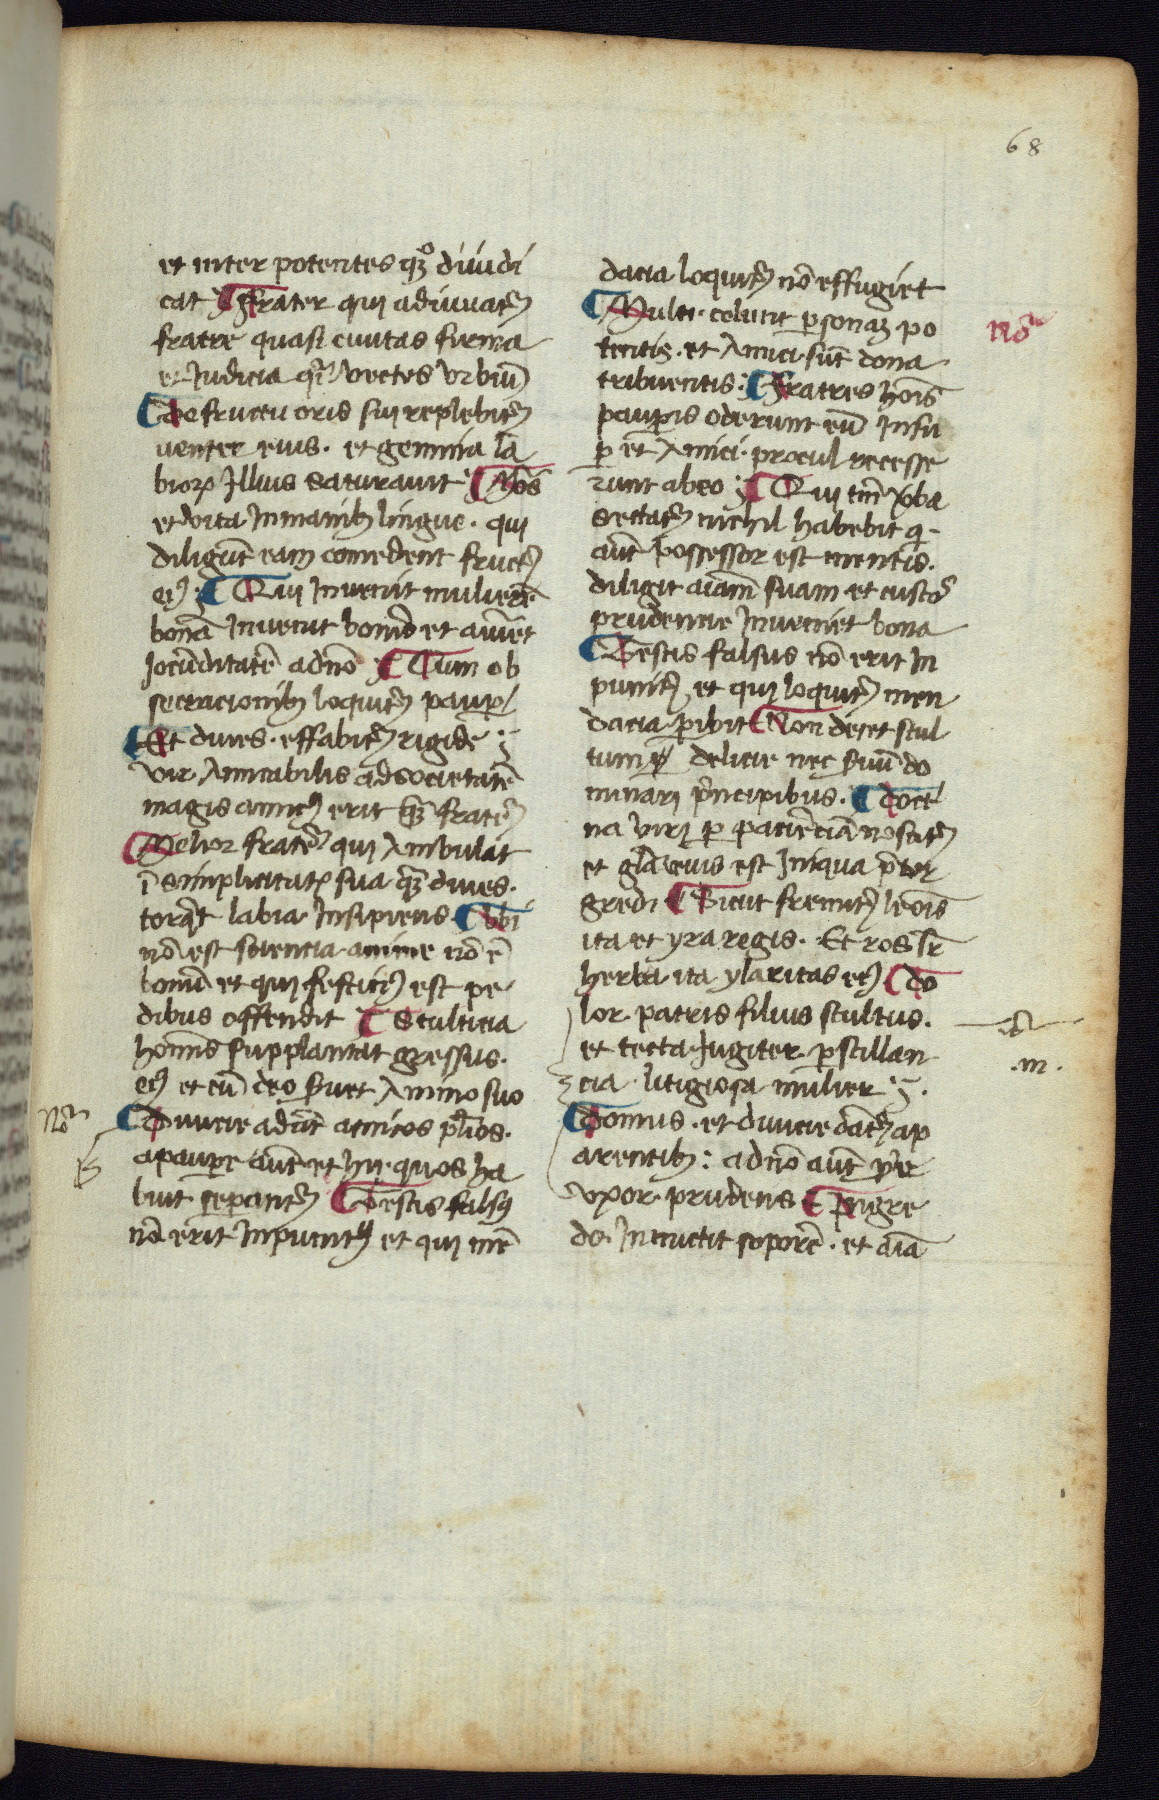 68
et inter potentes qꝫ diiudi
cat ¶ ffrater qui adiuuatꝰ
fratre quasi ciuitas firma
et Judicia qͣi vectes vrbiū
¶ De fructu oris sui replebitꝰ
venter eius. et gemina la
bioꝝ Illius saturauit ¶ Mōs
et vita In manibꝫ lingue. qui
diligūt eam comedent fructꝰ
eiꝰ ¶ Qui Inuenit mulierē
bonā Inuenit bonū et auriet
Jocūditatē a dnō ¶ Cum ob
secracionibꝫ loquitꝰ paupꝰ
¶ Et diues. effabitꝰ rigide
vir. Amicabilis ad societatē
magis amicꝰ erit qꝫ fratꝰ
¶ Melior fratꝰ qui Ambulat
ī simplicitatꝫ sua qꝫ diues.
torqꝫt labia. Insipiens. ¶ Ubi
nō est sciencia anime nō ē
bonū et qui festinꝰ est pe
dibus offendit ¶ Stulticia
hominis supplantat gressus.
eiꝰ et cū deo feruet Animo suo
Noͣ
¶ Diuicie adūt amicos plꝰios.
a paupere aūt et hij. quos ha
buit sepantꝰ ¶ Testis falsꝰ
nō erit Inpunitꝰ et qui mē
dacia loquitꝰ nō effugiet
¶ Multi. colunt ꝑsonaꝫ po
tentis. et Amici. sūt dona
tribuentis: ¶ Fratres hoīs
pauꝑis oderunt eū Insu
ꝑ et Amici. procul recesse
runt ab eo ¶ Qui tm̄ v̓ba
sectatꝰ nichil habebit q.
aūt possessor est mentis.
diligit aīam suam et custoꝰ
prudencie Inueniet bona
¶ Testis falsus nō erit In
punitꝰ. et qui loquitꝰ men
dacia. ꝑibit ¶ Non decet stul
tum delicie nec suū do
minari p̄ncipibus. ¶ Doct
na viri ꝑ pacienciā noscitꝰ
et gl̄a eius est Iniqua p̄ter
gredi ¶ Sicut fremitꝰ leoīs
ita et yra regis. Et ros sr̄
herba ita ylaritas eiꝰ ¶ Do
lor. patris filius stultus.
et tecta. Jugiter. ꝑstillan
cia. litigiosa mulier
¶ Domus. et diuicie dātꝰ ap
arentibꝫ: a dnō aūt ꝓp̄e
vxor. prudens ¶ Pigre
do. Inmictit soporē. et aīa
Noͣ
.m.